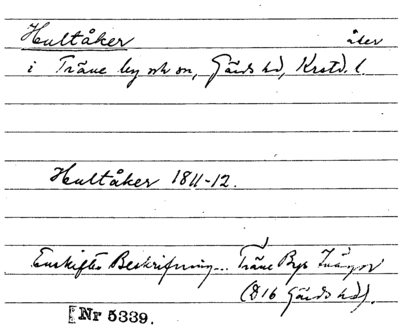 Hultåker åker
i Träne by och sn, Gärds hd, Krstd. l.
Hultåker 1811-12.
Enskiftes Beskrifning... Träne Bys Inägor
(D16 Gärds hd).
Nr 5339.